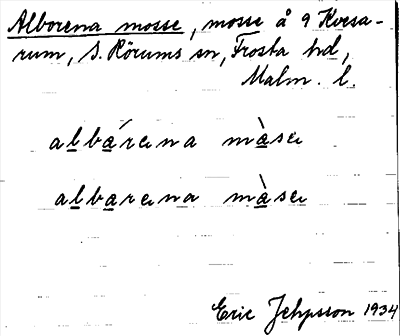 Alborena mosse, mosse å 9 Kvesa-
rum, S. Rörums sn, Frosta hd,
Malm. l.
albárena màsa
albarena màsa
Eric Jehpsson 1934